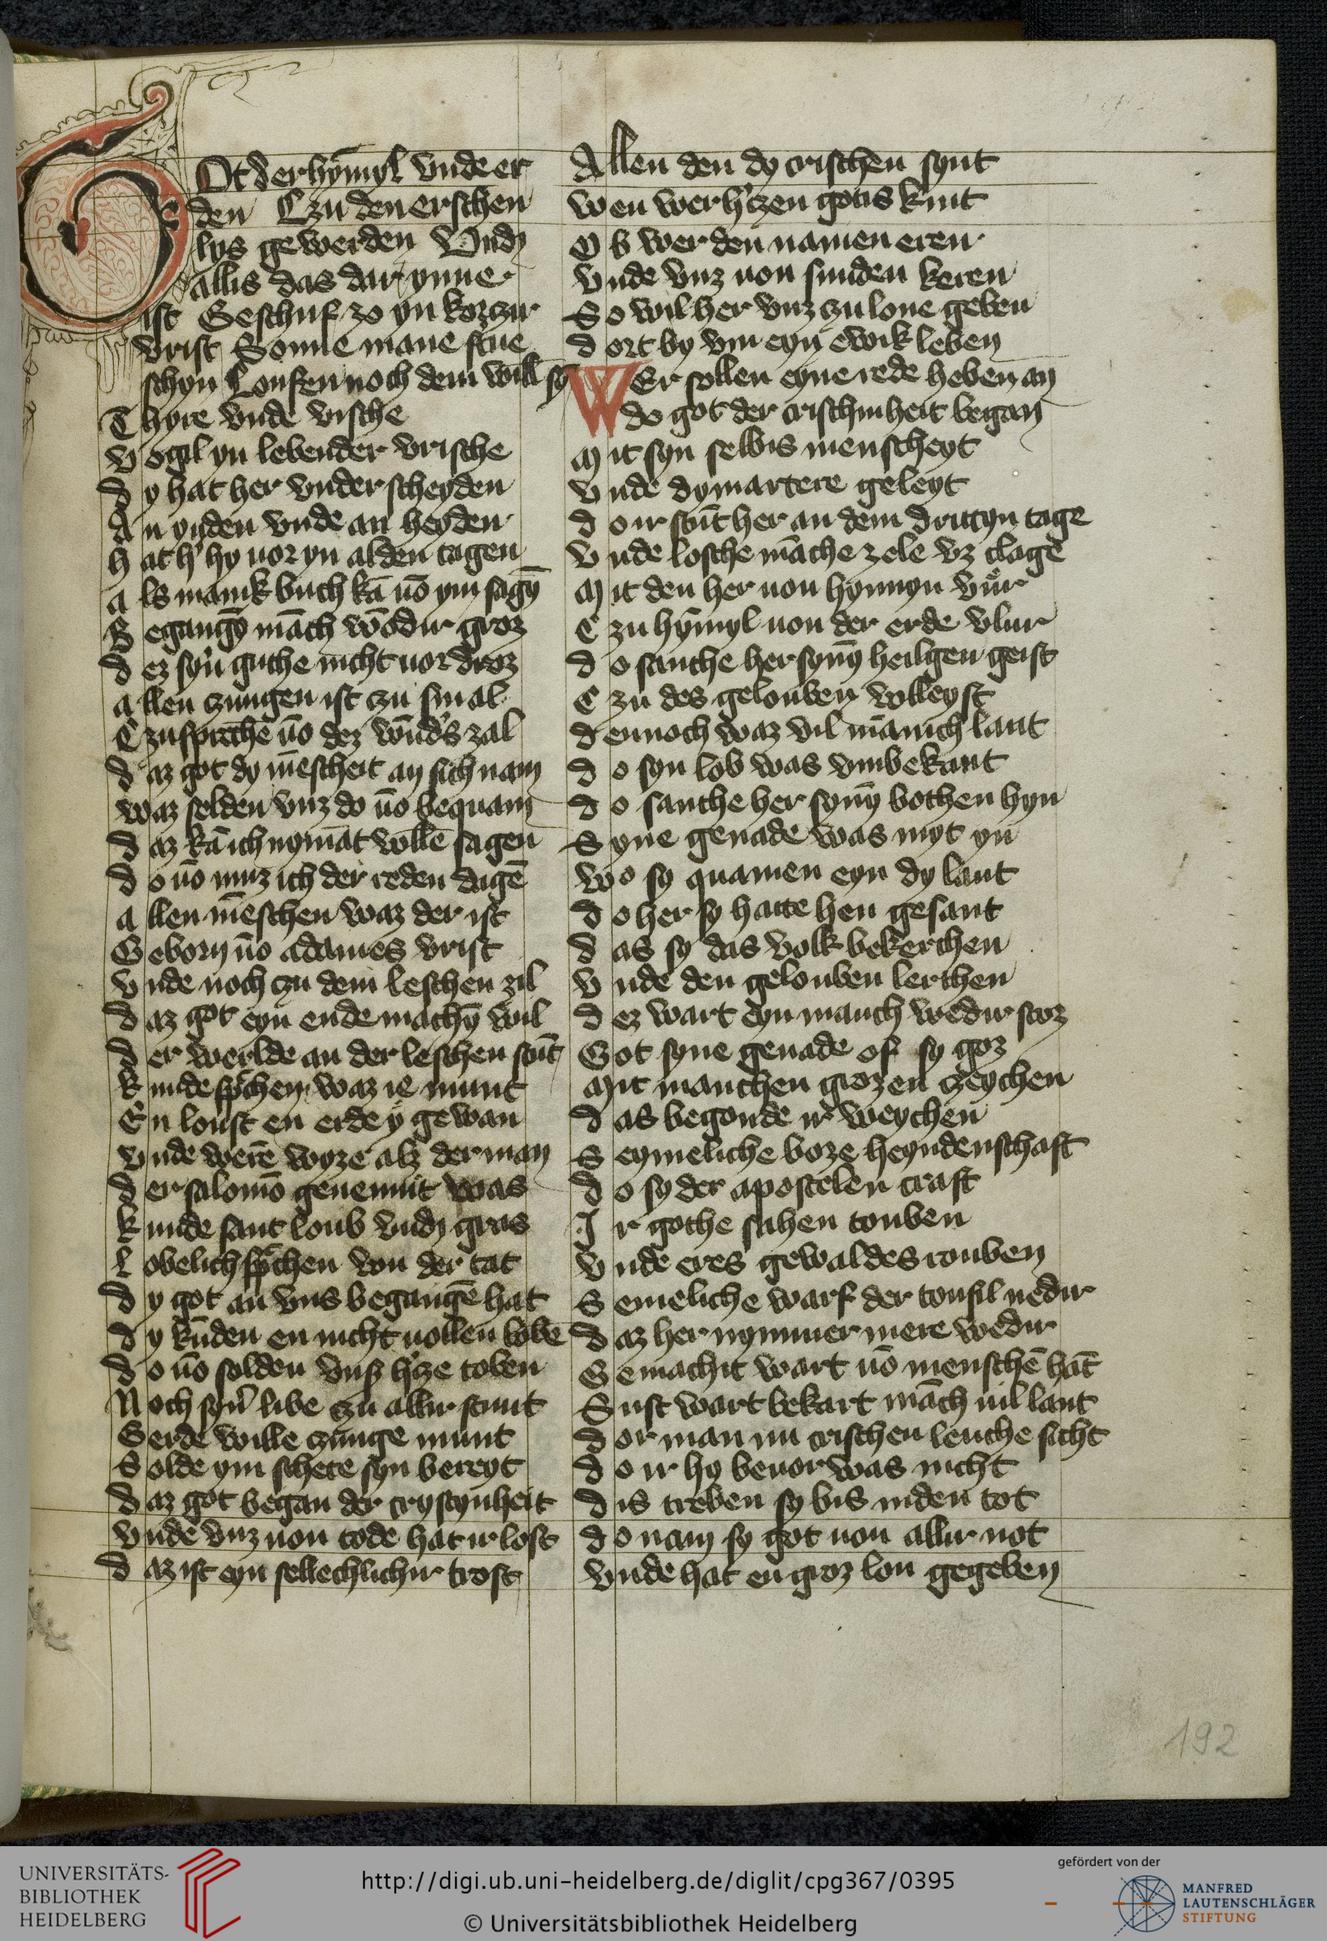 Ot der hym̄yl vnde er
den Czu den erschen
lys gewerden Vnd
allis das dar ynne
ist Geschuf zo yn korczur
vrist Sonne mane stne
schyn Loufen noch dem will sy
Thyre vnde vische
Vogil yn lebender vrische
dy hat her vnderscheyden
An yuden vnde an heyden
hat h' hy uor yn alden tagen
als manik buch kā uō ym sagȳ
Begangȳ māch wōdir groz
dez syn̄ guthe nicht uor droz
allen zungen ist czu smal
Czu sprechē uō dez wūd's zal
daz got dy mēscheit an sich nam
waz selden vnz do uō bequam
daz kā ich nymāt vollē sagen
do uō muz ich der reden dagē
allen mēschen waz der ist
Geborn uō adames vrist
vnde noch czu dem leschen zil
daz got eyn ende machȳ wil
der werlde an der leschen stūt
kunde sp'chen waz ie munt
En loust en erde y gewan
vnde werē wyze alz der man
der salomō genennit was
kunde sant loub vnd gras
lobelich sp'chen von der tat
dy got an vns begangē hat
dy kūden en nicht uollen lobē
do uō solden vnsz h'cze toben
Noch syn' libe czu allir stunt
Gerde wille czunge munt
Solde ym schere syn bereyt
daz got began der crystynheit
vnde vnz uon tode hat irlost
daz ist eyn sellechlichir trost
Allen den dy cristhen synt
wen wer h'czen gotis kint
Ob wer den namen eren
vnde vnz uon sunden keren
So wil her vnz zu lone geben
dort by ym eyn ewik leben
WEr sollen eyne rede heben an
do got der cristhinheit began
Mit syn selbis menscheyt
vnde dy martere geleyt
do ir stūt her an dem drittyn tage
vnde losche māche zele vz clage
Mit den her uon hynnyn vůr
Czu hȳmyl uon der erde vlur
do santhe her synȳ heiligen geist
Czu des gelouben volleyst
dennoch waz vil mānich lant
do syn lob was vmbekant
do santhe her synȳ bothen hyn
Syne genade was myt yn
wo sy quamen eyn dy lant
do her sy hatte hen gesant
das sy das volk bekerchen
vnde den gelouben lerthen
dez wart eyn manch wedir stoz
Got syne genade of sy goz
Mit manchen grozen czeychen
das begonde ir weychen
Seymeliche boze heyndenschaft
do sy der apostelen craft
Ir gothe sahen touben
vnde eres gewaldes rouben
Semeliche warf der toufil nedir
daz her nymmer mere wedir
Gemachit wart uō menschē hāt
Sust wart bekart māch uil lant
dor man nu cristhen leuthe sicht
do ir hy beuor was nicht
dis treben sy bis inden tot
do nam sy got uon allir not
vnde hat en groz lon gegeben
192
UNIVERSITÄTS-
BIBLIOTHEK
HEIDELBERG
http://digi.ub.uni-heidelberg.de/diglit/cpg367/0395
© Universitätsbibliothek Heidelberg
gefördert von der
MANFRED
LAUTENSCHLÄGER
STIFTUNG